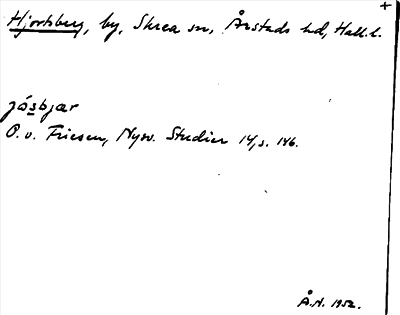 Hjortsberg, by, Skrea sn, Årstads hd, Hall. l.
jósbjær
O. v. Friesen, Nysv. Studier 14, s. 146.
Å.N. 1952.